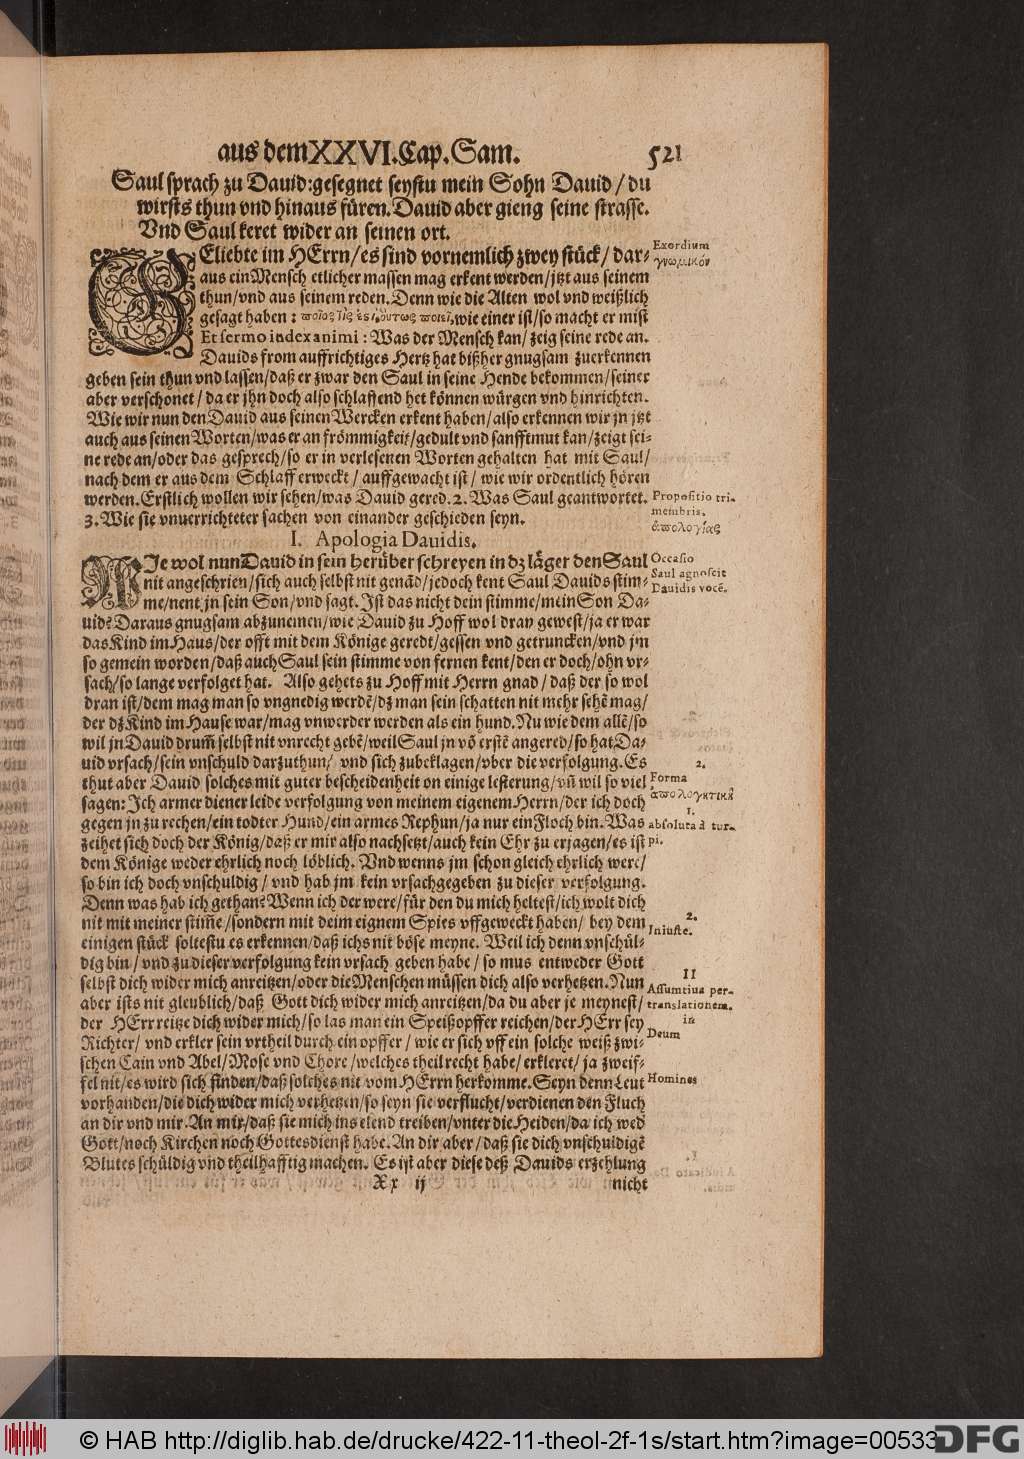 aus dem XXVI. Cap. Sam. 521
Saul sprach zu Dauid: gesegnet seystu mein Sohn Dauid / du
wirsts thun vnd hinaus füren. Dauid aber gieng seine strasse.
Vnd Saul keret wider an seinen ort.
GEliebte im HErrn / es sind vornemlich zwey stück / dar-
aus ein Mensch etlicher massen mag erkent werden / jtzt aus seinem
thun / vnd aus seinem reden. Denn wie die Alten wol vnd weißlich
gesagt haben: wie einer ist / so macht er mist
Et sermo index animi: Was der Mensch kan / zeig seine rede an.
Dauids from auffrichtiges Hertz hat bißher gnugsam zuerkennen
geben sein thun vnd lassen / daß er zwar den Saul in seine Hende bekommen / seiner
aber verschonet / da er jhn doch also schlaffend het können würgen vnd hinrichten.
Wie wir nun den Dauid aus seinen Wercken erkent haben / also erkennen wir jn jtzt
auch aus seinen Worten / was er an frömmigkeit / gedult vnd sanfftmut kan / zeigt sei-
ne rede an / oder das gesprech / so er in verlesenen Worten gehalten hat mit Saul /
nach dem er aus dem Schlaff erweckt / auffgewacht ist / wie wir ordentlich hören
werden. Erstlich wollen wir sehen / was Dauid gered. 2. Was Saul geantwortet.
3. Wie sie vnuerrichteter sachen von einander geschieden seyn.
Exordium
γνωμικόν
Propositio tri-
membris.
ἀπολογίας
I. Apologia Dauidis.
WIe wol nun Dauid in sein herüber schreyen in dz läger den Saul
nit angeschrien / sich auch selbst nit genād / jedoch kent Saul Dauids stim-
me / nent jn sein Son / vnd sagt. Ist das nicht dein stimme / mein Son Da-
uid? Daraus gnugsam abzunemen / wie Dauid zu Hoff wol dran gewest / ja er war
das Kind im Haus / der offt mit dem Könige geredt / gessen vnd getruncken / vnd jm
so gemein worden / daß auch Saul sein stimme von fernen kent / den er doch / ohn vr-
sach / so lange verfolget hat. Also gehets zu Hoff mit Herrn gnad / daß der so wol
dran ist / dem mag man so vngnedig werdē / dz man sein schatten nit mehr sehē mag /
der dz Kind im Hause war / mag vnwerder werden als ein hund. Nu wie dem allē / so
wil jn Dauid drum̄ selbst nit vnrecht gebē / weil Saul jn vō erstē angered / so hat Da-
uid vrsach / sein vnschuld darzuthun / vnd sich zubeklagen / vber die verfolgung. Es
thut aber Dauid solches mit guter bescheidenheit on einige lesterung / vn̄ wil so viel
sagen: Ich armer diener leide verfolgung von meinem eigenem Herrn / der ich doch
gegen jn zu rechen / ein todter Hund / ein armes Rephun / ja nur ein Floch bin. Was
zeihet sich doch der König / daß er mir also nachsetzt / auch kein Ehr zu erjagen / es ist
dem Könige weder ehrlich noch löblich. Vnd wenns jm schon gleich ehrlich were /
so bin ich doch vnschuldig / vnd hab jm kein vrsach gegeben zu dieser verfolgung.
Denn was hab ich gethan? Wenn ich der were / für den du mich heltest / ich wolt dich
nit mit meiner stim̄e / sondern mit deim eignem Spies vffgeweckt haben / bey dem
einigen stück soltestu es erkennen / daß ichs nit böse meyne. Weil ich denn vnschül-
dig bin / vnd zu dieser verfolgung kein vrsach geben habe / so mus entweder Gott
selbst dich wider mich anreitzen / oder die Menschen müssen dich also verhetzen. Nun
aber ists nit gleublich / daß Gott dich wider mich anreitzen / da du aber je meynest /
der HErr reitze dich wider mich / so las man ein Speißopffer reichen / der HErr sey
Richter / vnd erkler sein vrtheil durch ein opffer / wie er sich vff ein solche weiß zwi-
schen Cain vnd Abel / Mose vnd Chore / welches theil recht habe / erkleret / ja zweif-
fel nit / es wird sich finden / daß solches nit vom HErrn herkomme. Seyn denn Leut
vorhanden / die dich wider mich verhetzen / so seyn sie verflucht / verdienen den Fluch
an dir vnd mir. An mir / daß sie mich ins elend treiben / vnter die Heiden / da ich wed̄
Gott / noch Kirchen noch Gottesdienst habe. An dir aber / daß sie dich vnschuldigē
Blutes schüldig vnd theilhafftig machen. Es ist aber diese deß Dauids erzehlung
Xx ij nicht
Occasio
Saul agnoscit
Dauidis vocē.
2.
Forma
1.
absoluta à tur-
pi.
2.
Iniuste.
II
Assumtiua per-
translationem.
in
Deum
Homines
© HAB http://diglib.hab.de/drucke/422-11-theol-2f-1s/start.htm?image=00533
DFG